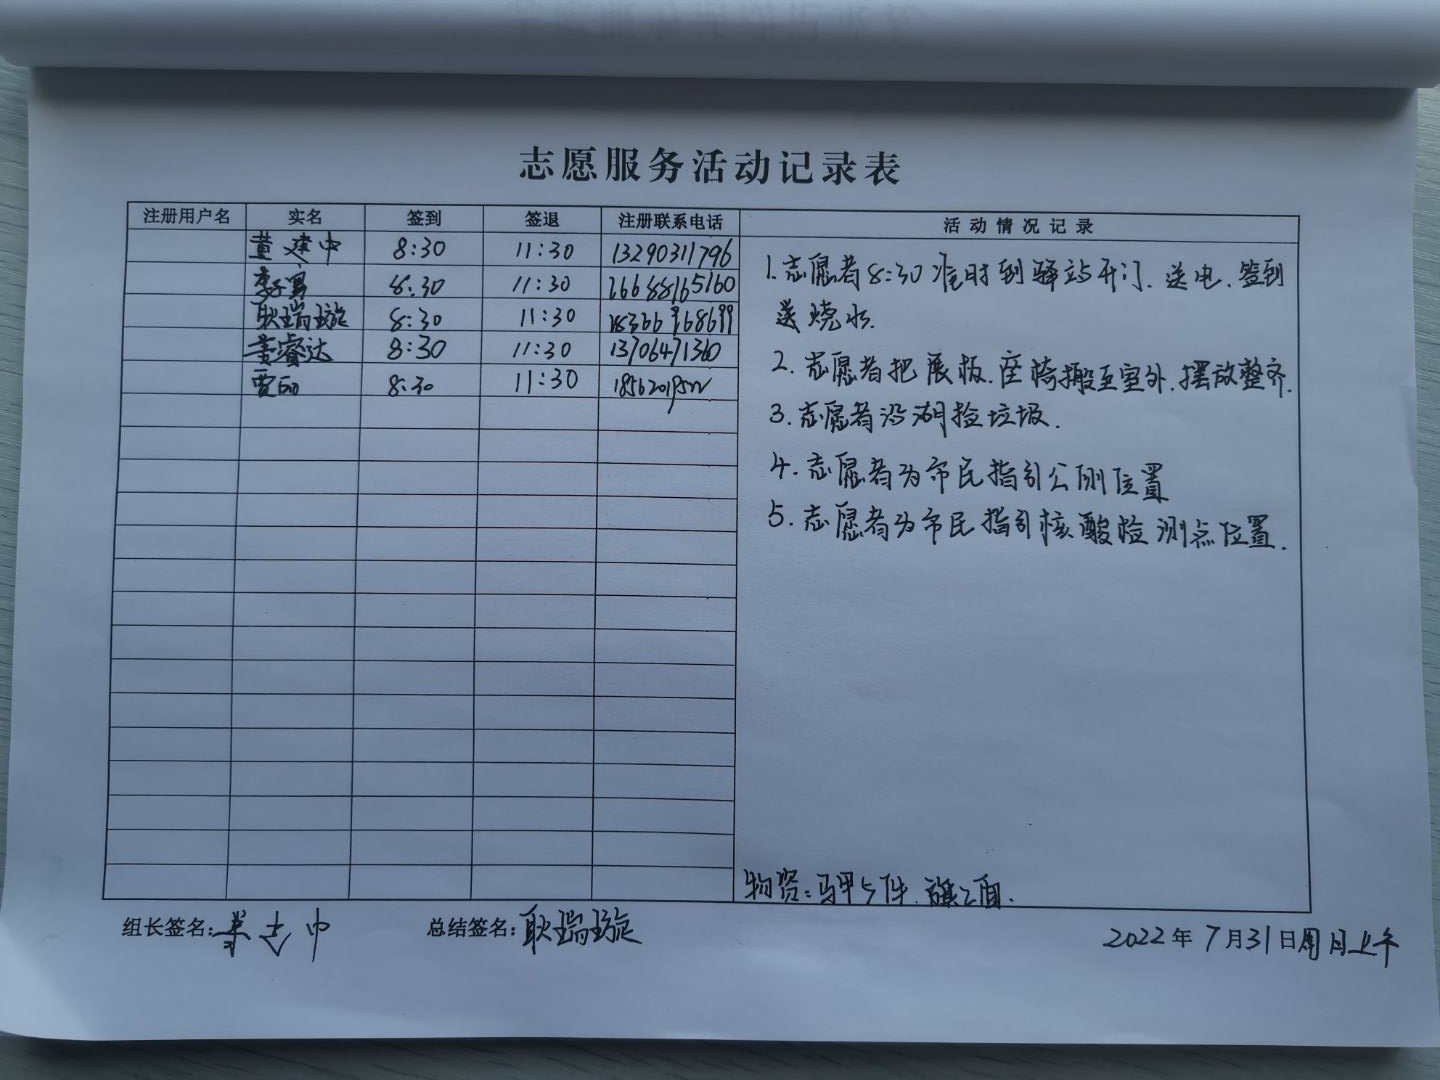 志愿服务活动记录表
注册用户名 实名 签到 签退 注册联系电话 活动情况记录
黄建中 8:30 11:30 13290311796
李男 8:30 11:30 16688165160
耿瑞璇 8:30 11:30 15366968699
黄睿达 8:30 11:30 13706471360
8:30 11:30
1.志愿者8:30准时到驿站开门、送电、签到
烧水.
2.志愿者把展板、座椅搬至室外,摆放整齐.
3.志愿者沿湖捡垃圾.
4.志愿者为市民指引公厕位置
5.志愿者为市民指引核酸检测点位置.
物资:马甲5件、旗2面.
组长签名: 总结签名:耿瑞璇
2022年7月31日周日上午